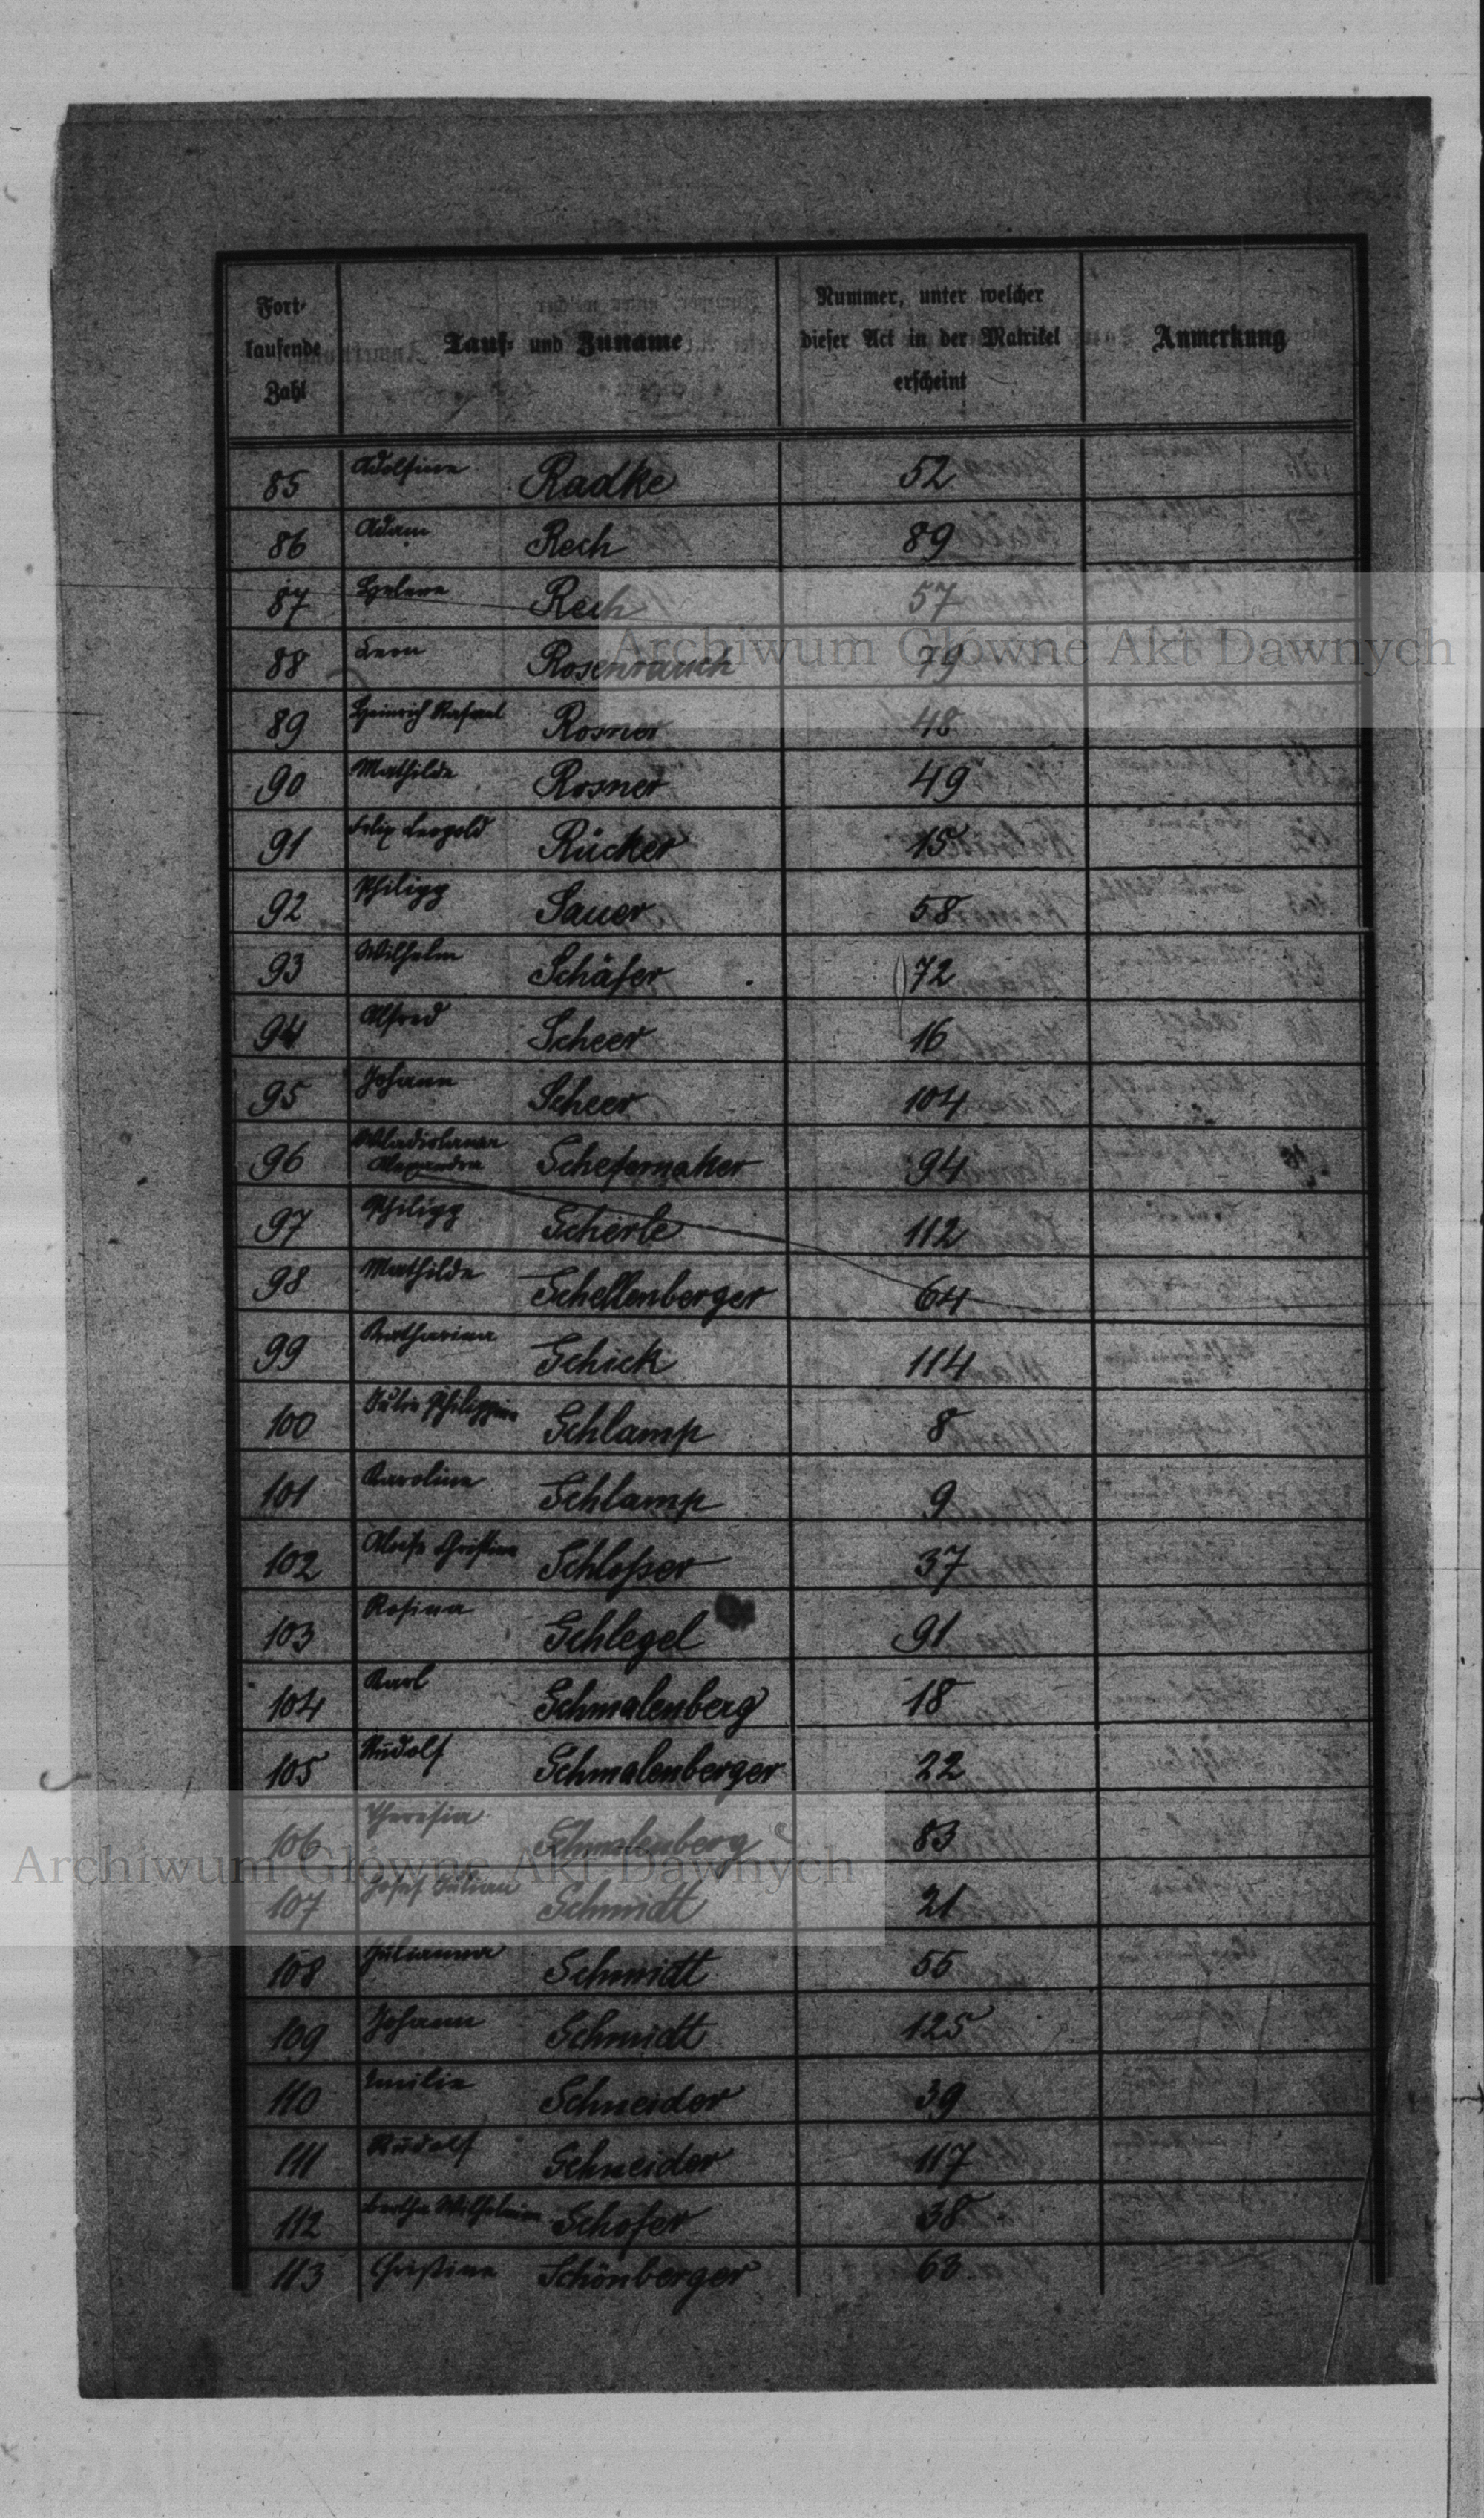 Fort-
laufende
Zahl
Tauf- und Zuname
Nummer, unter welcher
dieser Act in der Matrikel
erscheint
Anmerkung
85 Adolfine Radke 52
86 Adam Rech 89
87 Helene Rech 57
88 Leon Rosenrauch 79
89 Heinrich Rafael Rosner 48
90 Mathilde Rosner 49
91 Filip Leopold Rücker 15
92 Philipp Sauer 58
93 Wilhelm Schäfer 72
94 Alfred Scheer 16
95 Johann Scheer 104
96 Wladislawa Alexandra Schefernaker 94
97 Philipp Scherle 112
98 Mathilde Schellenberger 64
99 Katharina Schick 114
100 Julie Philippine Schlamp 8
101 Karoline Schlamp 9
102 Christine Schloßer 37
103 Rosina Schlegel 91
104 Karl Schmalenberg 18
105 Rudolf Schmalenberger 22
106 Theresia Schmalenberg 83
107 Josef Julian Schmidt 21
108 Julianna Schmidt 55
109 Johann Schmidt 125
110 Emilie Schneider 39
111 Rudolf Schneider 117
112 Bertha Wilhelmine Schofer 38
113 Christine Schönberger 63
Archiwum Główne Akt Dawnych
Archiwum Główne Akt Dawnych